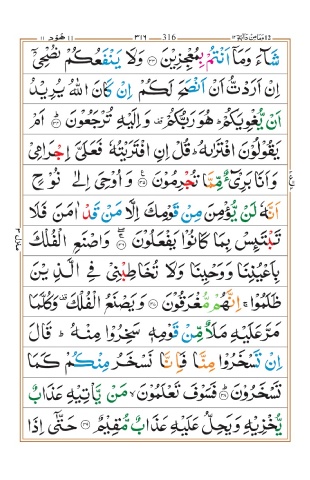 ۱۱ هُوْد ۱۱ ۳۱۶ 316 وَمَا مِنْ دَآبَّةٍ ۱۲
شَآءَ وَمَآ اَنْتُمْ بِمُعْجِزِيْنَ ۝۳۳ وَلَا يَنْفَعُكُمْ نُصْحِيْٓ
اِنْ اَرَدْتُّ اَنْ اَنْصَحَ لَكُمْ اِنْ كَانَ اللّٰهُ يُرِيْدُ
اَنْ يُّغْوِيَكُمْ ؕ هُوَ رَبُّكُمْ ۟ وَاِلَيْهِ تُرْجَعُوْنَ ۝۳۴ اَمْ
يَقُوْلُوْنَ افْتَرٰىهُ ؕ قُلْ اِنِ افْتَرَيْتُهٗ فَعَلَيَّ اِجْرَامِيْ
وَاَنَا بَرِيْٓءٌ مِّمَّا تُجْرِمُوْنَ ۝۳۵ وَاُوْحِيَ اِلٰى نُوْحٍ
اَنَّهٗ لَنْ يُّؤْمِنَ مِنْ قَوْمِكَ اِلَّا مَنْ قَدْ اٰمَنَ فَلَا
تَبْتَئِسْ بِمَا كَانُوْا يَفْعَلُوْنَ ۝۳۶ وَاصْنَعِ الْفُلْكَ
بِاَعْيُنِنَا وَوَحْيِنَا وَلَا تُخَاطِبْنِيْ فِي الَّذِيْنَ
ظَلَمُوْا ۚ اِنَّهُمْ مُّغْرَقُوْنَ ۝۳۷ وَيَصْنَعُ الْفُلْكَ ۟ وَكُلَّمَا
مَرَّ عَلَيْهِ مَلَاٌ مِّنْ قَوْمِهٖ سَخِرُوْا مِنْهُ ؕ قَالَ
اِنْ تَسْخَرُوْا مِنَّا فَاِنَّا نَسْخَرُ مِنْكُمْ كَمَا
تَسْخَرُوْنَ ۝۳۸ فَسَوْفَ تَعْلَمُوْنَ ۙ مَنْ يَّاْتِيْهِ عَذَابٌ
يُّخْزِيْهِ وَيَحِلُّ عَلَيْهِ عَذَابٌ مُّقِيْمٌ ۝۳۹ حَتّٰٓى اِذَا